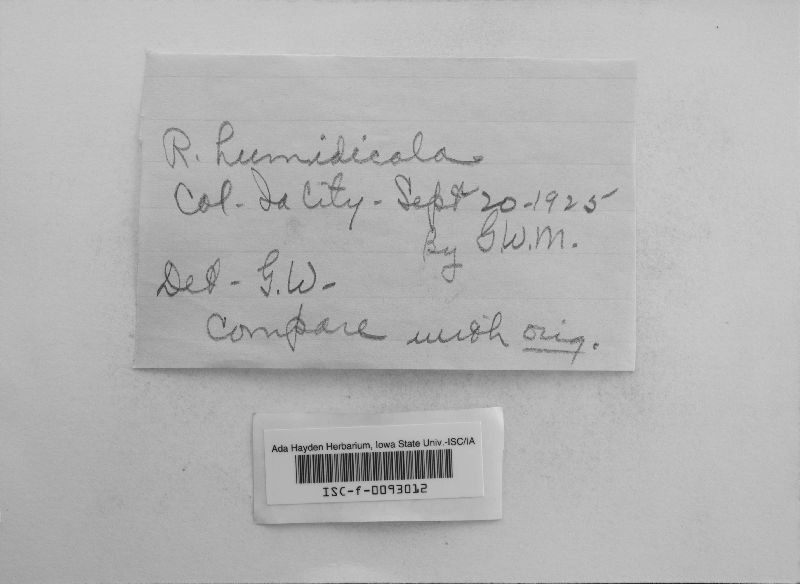 R. humidicola.
Col - Ia City - Sept 20 - 1925
By G.W.M.
Det - G.W -
Compare with orig.
Ada Hayden Herbarium, Iowa State Univ.-ISC/IA
ISC-f-0093012